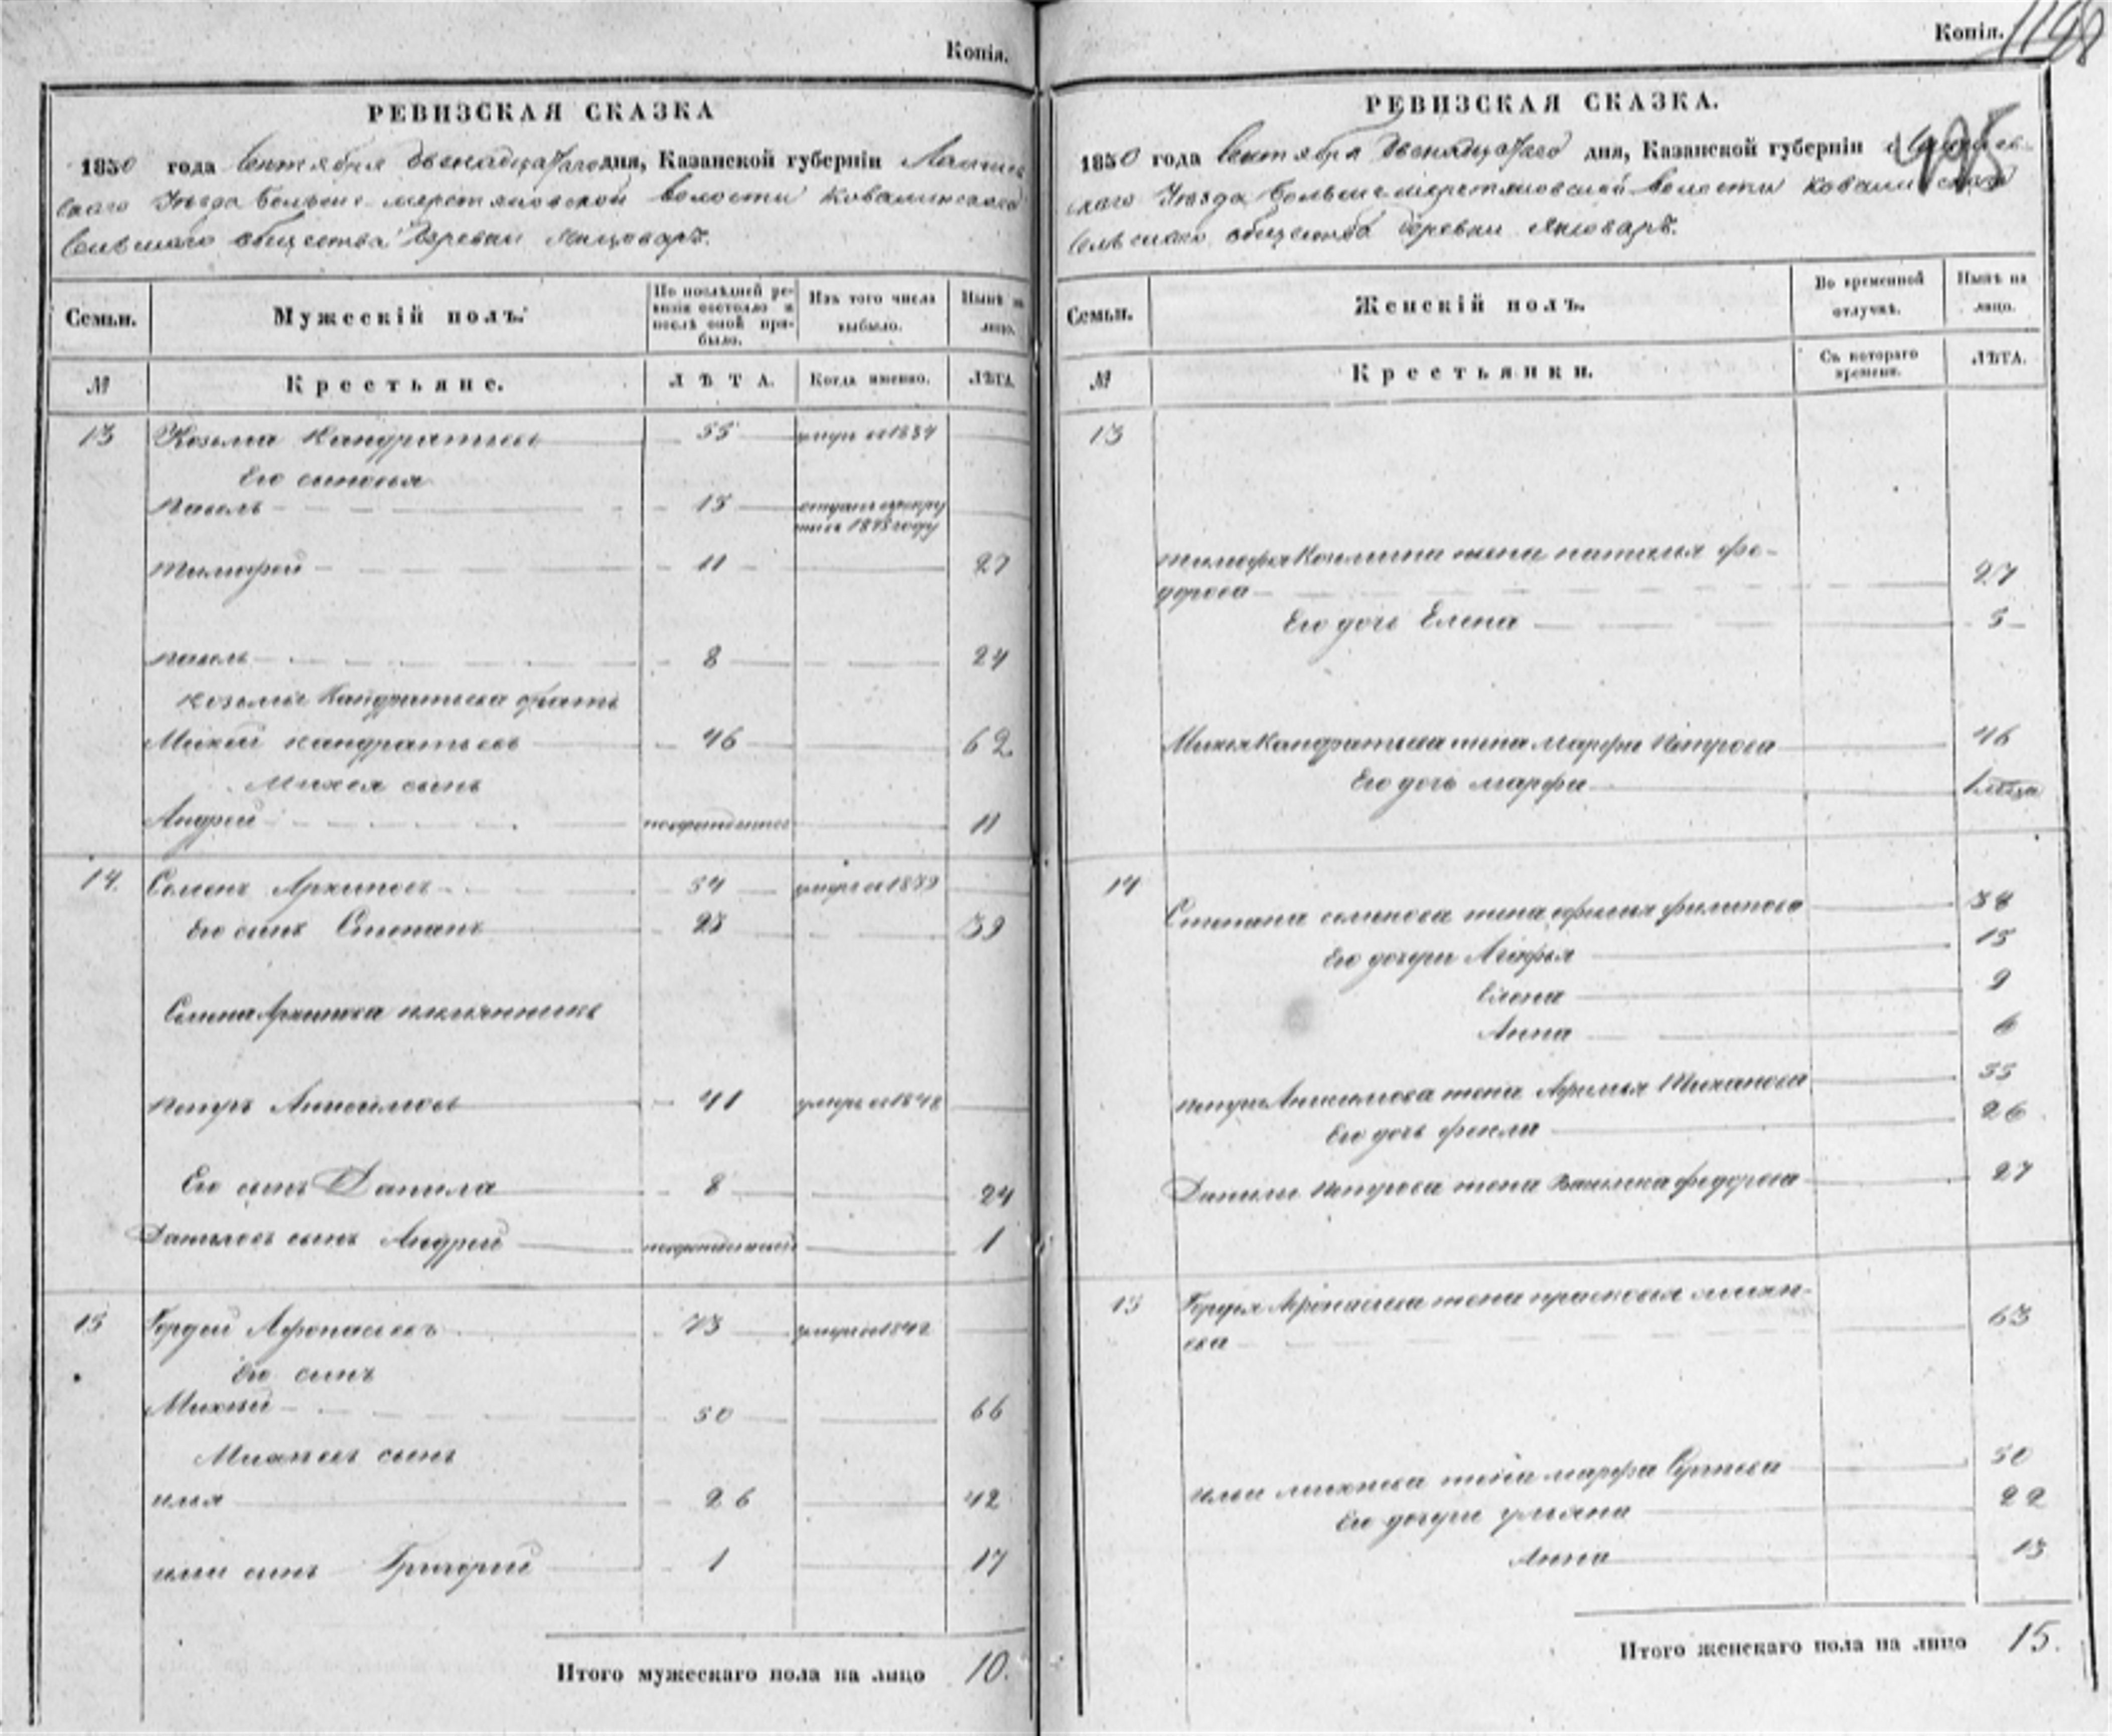 Копія.
РЕВИЗСКАЯ СКАЗКА
1850 года Сентября двенадцатаго дня, Казанской губерніи Лаишев
скаго Уезда Больше-меретяковской волости Ковалинскаго
Сельскаго общества Деревни Янцоваръ.
Семьи. Мужескій полъ. По послѣдней ревизіи состояло и послѣ оной прибыло. Изъ того числа выбыло. Нынѣ на лицо.
№ Крестьяне. ЛѢТА. Когда именно. ЛѢТА.
13 Козьма Кандратьевъ 55 умеръ въ 1834
Его сыновья
Павелъ 15 отданъ въ рекру
ты въ году
Тимофей 11 27
павелъ 8 24
Козьмы Кандратьева братъ
Михей кандратьевъ 46 62
Михея сынъ
Андрей новорожденный 11
14. Семенъ Архиповъ 54 умеръ въ 1839
Его сынъ Степанъ 23 39
Семена Архипова племянникъ
Петръ Анисимовъ 41 умеръ въ 1848
Его сынъ Данила 8 24
Даниловъ сынъ Андрей новорожденный 1
15 Гордей Афонасьевъ 73 умеръ въ 1842
Его сынъ
Михей 50 66
Михеевъ сынъ
илья 26 42
ильи сынъ Григорий 1 17
Итого мужескаго пола на лицо 10.
Копія. 1198
РЕВИЗСКАЯ СКАЗКА.
495
1850 года Сентября двенадцатаго дня, Казанской губерніи Лаишев-
скаго Уезда Больше меретяковской волости Ковалинскаго
Сельскаго общества деревни Янцоваръ.
Семьи. Женскій полъ. Во временной отлучкѣ. Нынѣ на лицо.
№ Крестьянки. Съ котораго времени. ЛѢТА.
13
Тимофея Козьмина жена наталья фе-
дорова 27
Его дочь Елена 5
Михея Кандратьева жена Марфа Петрова 46
Его дочь марфа 1 месяца
14
Степана семенова жена офимья филипова 38
Его дочери Агафья 15
Елена 9
Анна 6
петра Анисимова жена Афимья 55
Его дочь фекла 26
Данилы петрова жена Василиса федорова 27
15 Гордея Афонасьева жена прасковья емиян-
ева 63
ильи михеева жена марфа Сергеева 50
Его дочери ульяна 22
Анна 13
Итого женскаго пола на лицо 15.